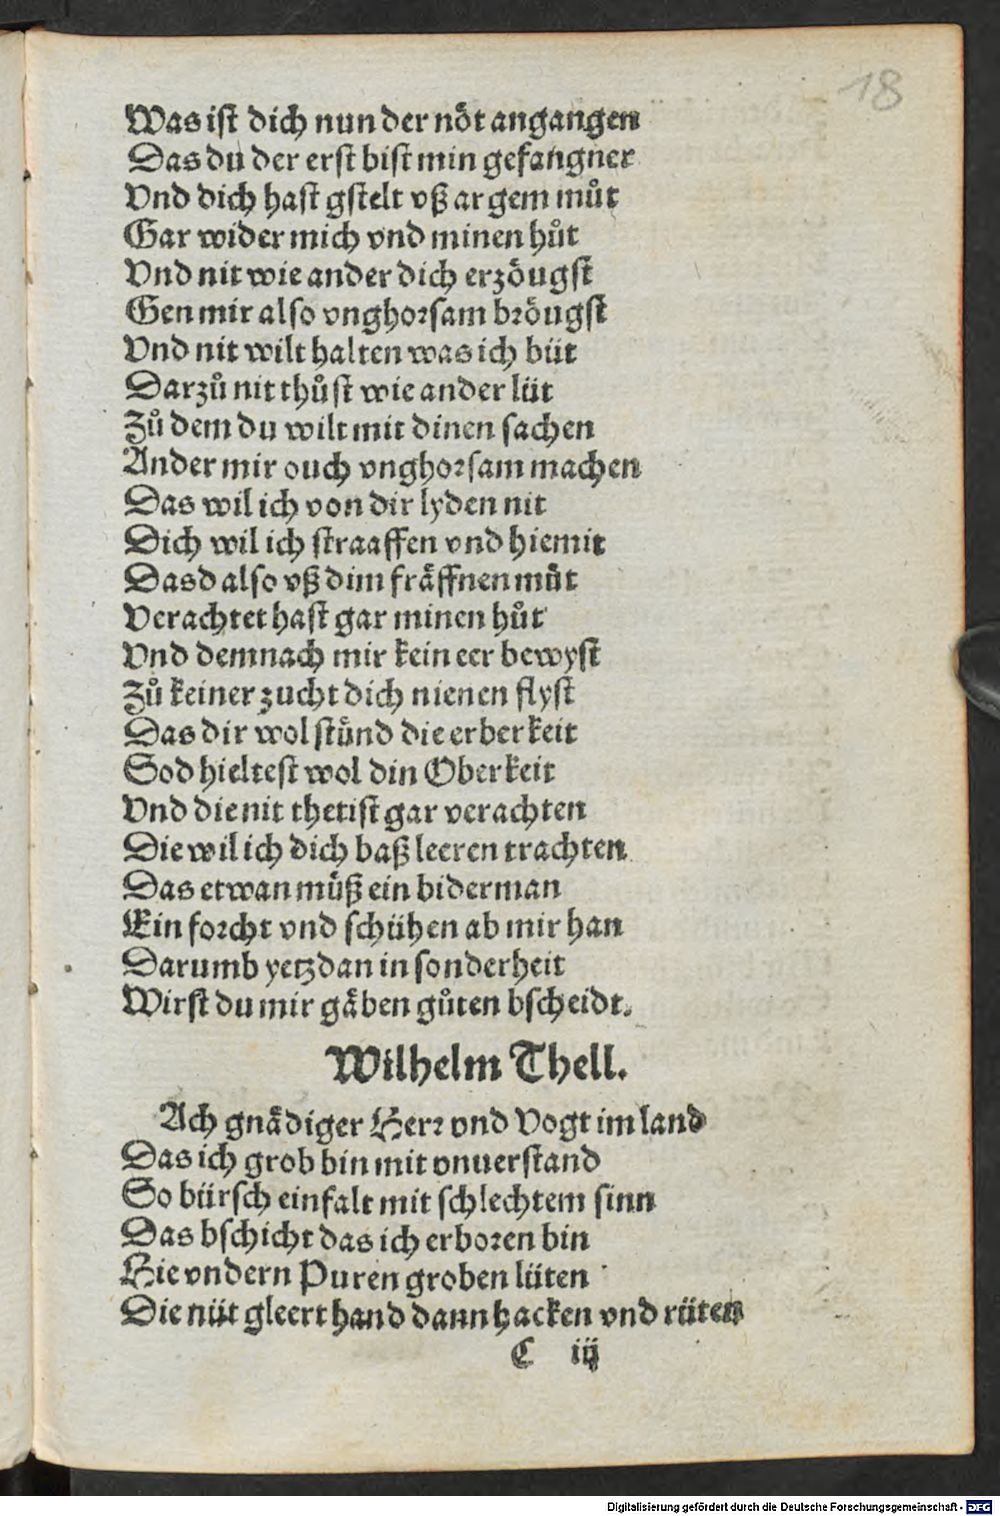 18
Was ist dich nun der nöt angangen
Das du der erst bist min gefangner
Vnd dich hast gstelt vß argem můt
Gar wider mich vnd minen hůt
Vnd nit wie ander dich erzöugst
Gen mir also vnghorsam bröugst
Vnd nit wilt halten was ich büt
Darzů nit thůst wie ander lüt
Zů dem du wilt mit dinen sachen
Ander mir ouch vnghorsam machen
Das wil ich von dir lyden nit
Dich wil ich straaffen vnd hiemit
Dasd also vß dim fräffnen můt
Verachtet hast gar minen hůt
Vnd demnach mir kein eer bewyst
Zů keiner zucht dich nienen flyst
Das dir wol stünd die erberkeit
Sod hieltest wol din Oberkeit
Vnd die nit thetist gar verachten
Die wil ich dich baß leeren trachten
Das etwan müß ein biderman
Ein forcht vnd schühen ab mir han
Darumb yetz dan in sonderheit
Wirst du mir gäben gůten bscheidt.
Wilhelm Thell.
Ach gnädiger Herr vnd Vogt im land
Das ich grob bin mit vnuerstand
So bürsch einfalt mit schlechtem sinn
Das bschicht das ich erboren bin
Hie vndern Puren groben lüten
Die nüt gleert hand dann hacken vnd rüten
C iij
Digitalisierung gefördert durch die Deutsche Forschungsgemeinschaft - DFG